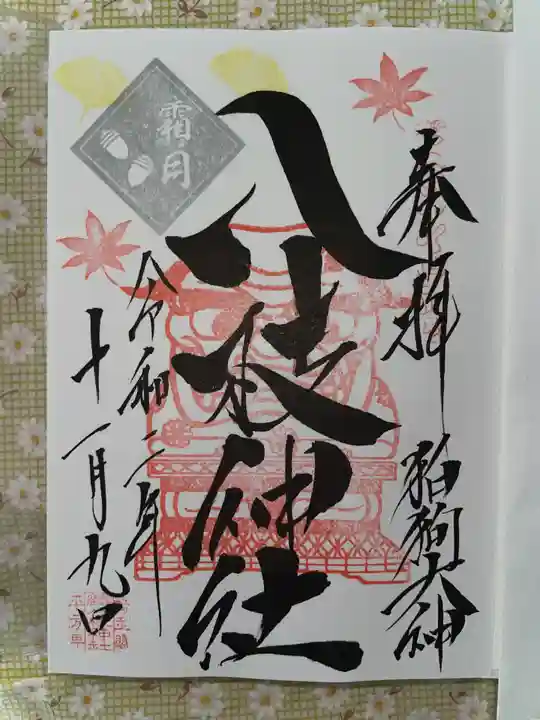 奉拝
狛狗大神
八枝神社
霜月
令和二年
十一月九日